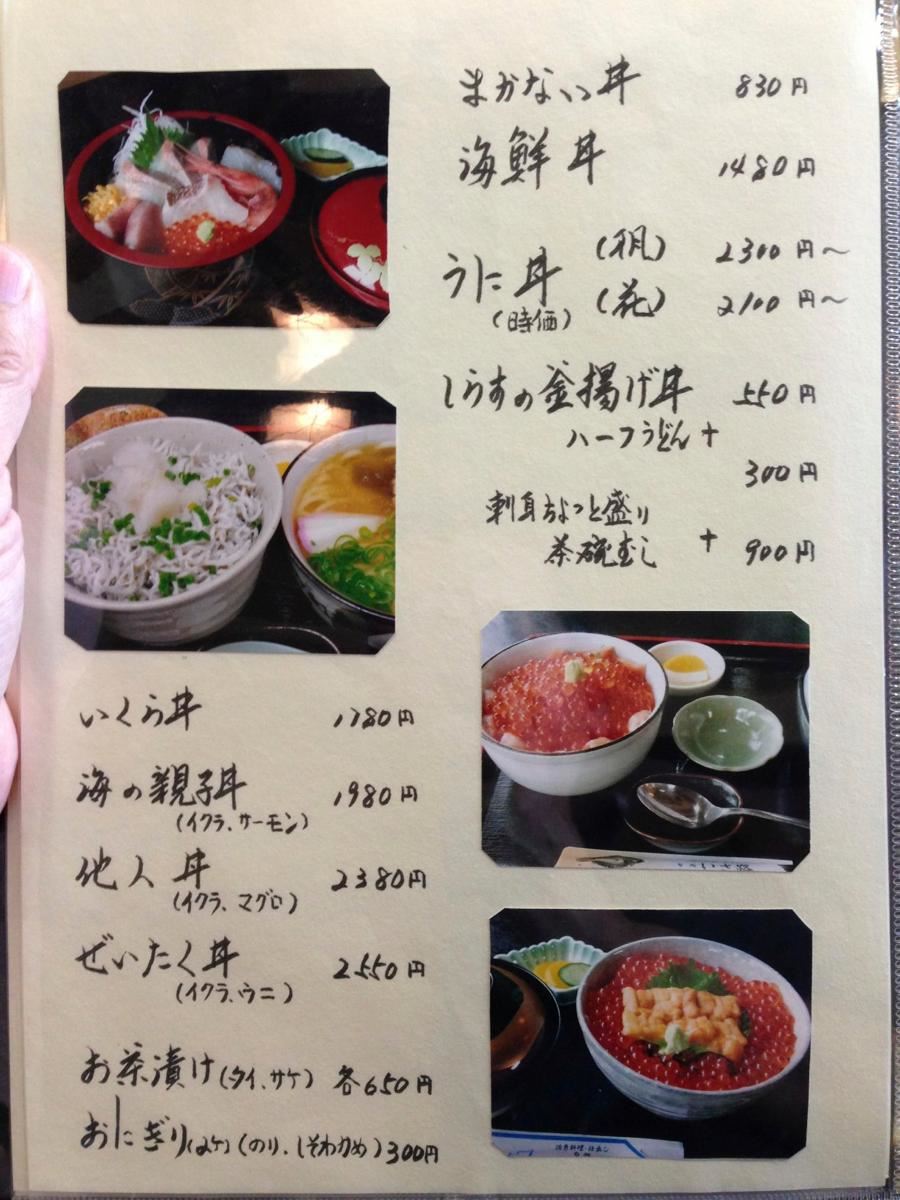 まかない丼 830円
海鮮丼 1480円
うに丼 (帆) 2300円〜
(時価) (花) 2100円〜
しらすの釜揚げ丼 550円
ハーフうどん +
300円
刺身ちょっと盛り
茶碗むし + 900円
いくら丼 1780円
海の親子丼 1980円
(イクラ、サーモン)
他人丼 2380円
(イクラ、マグロ)
ぜいたく丼 2550円
(イクラ、ウニ)
お茶漬け(タイ、サケ) 各650円
おにぎり(2ケ)(のり、しそわかめ)300円